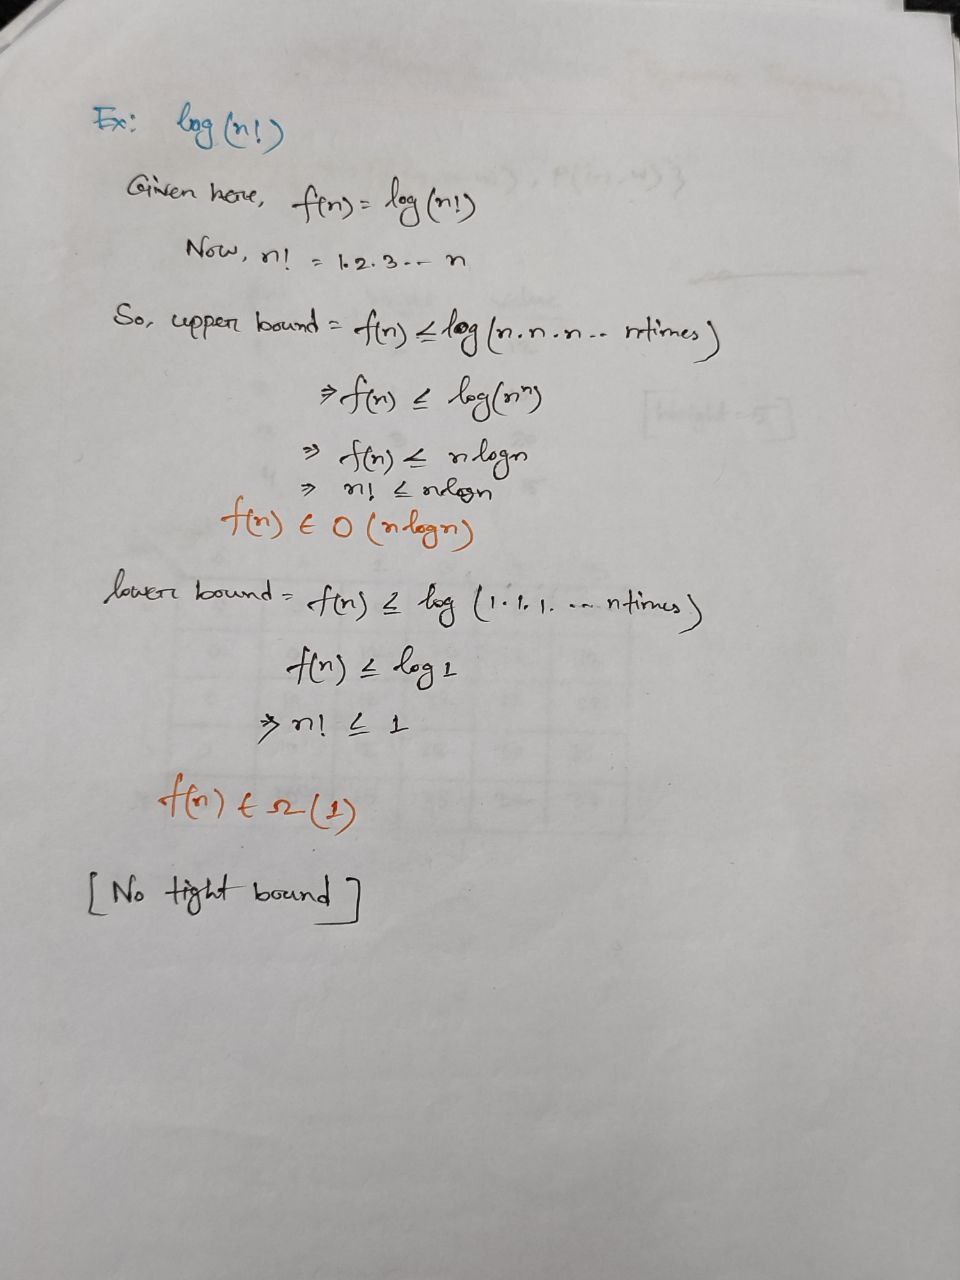 Ex: log(n!)
Given here, f(n) = log(n!)
Now, n! = 1.2.3... n
So, upper bound = f(n) ≤ log(n.n.n... ntimes)
⇒ f(n) ≤ log(nⁿ)
⇒ f(n) ≤ nlogn
⇒ n! ≤ nlogn
f(n) ∈ O(nlogn)
lower bound = f(n) ≤ log(1.1.1. ... ntimes)
f(n) ≤ log 1
⇒ n! ≤ 1
f(n) ∈ Ω(1)
[No tight bound]